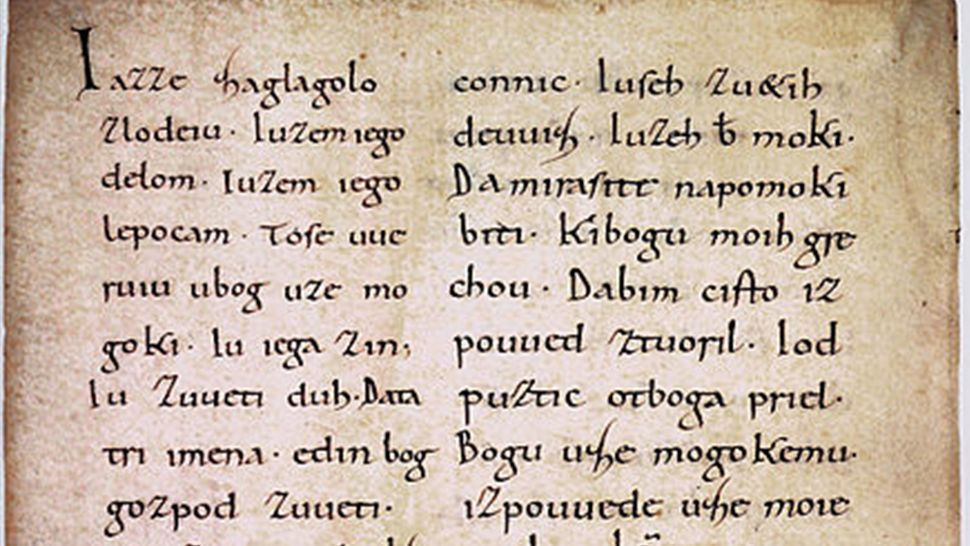 Iazze zaglagolo
zlodeiu· Iuzem iego
delom· Iuzem iego
lepocam· Tose uue
ruiu ubog uze mo
goki· Iu iega Zin;
Iu Zuueti duh· Data
tri imena· edin bog
gozpod Zuueti·
connic· Iuseh zu&ih
deuuiz· Iuzeh ƀ moki·
Da mirasite napomoki
biti· Kibogu moih gre
chou· Dabim cisto iz
pouued ztuoril· Iod
puztic otboga priel·
Bogu uze mogokemu·
izpouuede uze moie